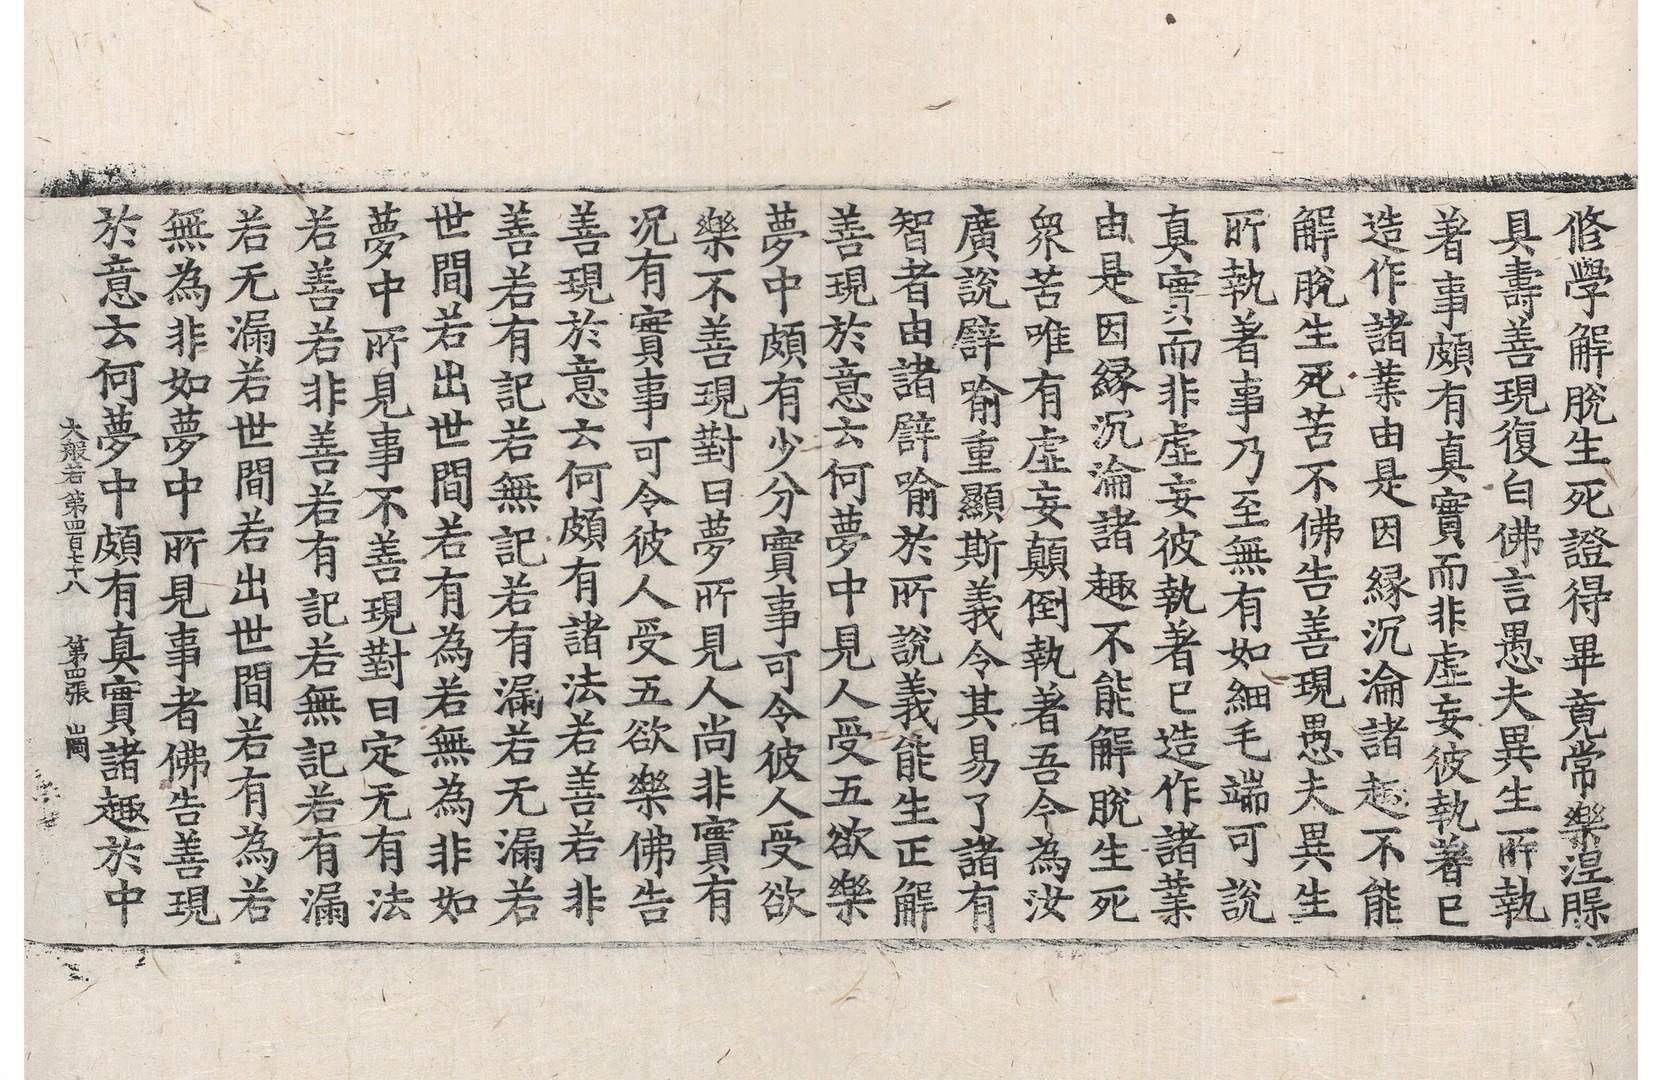 修學解脫生死證得畢竟常樂涅槃
具壽善現復白佛言愚夫異生所執
著事頗有真實而非虛妄彼執著已
造作諸業由是因緣沉淪諸趣不能
解脫生死苦不佛告善現愚夫異生
所執著事乃至無有如細毛端可說
真實而非虛妄彼執著已造作諸業
由是因緣沉淪諸趣不能解脫生死
衆苦唯有虛妄顛倒執著吾今為汝
廣說譬喻重顯斯義令其易了諸有
智者由諸譬喻於所說義能生正解
善現於意云何夢中見人受五欲樂
夢中頗有少分實事可令彼人受欲
樂不善現對曰夢所見人尚非實有
況有實事可令彼人受五欲樂佛告
善現於意云何頗有諸法若善若非
善若有記若無記若有漏若无漏若
世間若出世間若有為若無為非如
夢中所見事不善現對曰定无有法
若善若非善若有記若無記若有漏
若无漏若世間若出世間若有為若
無為非如夢中所見事者佛告善現
於意云何夢中頗有真實諸趣於中
大般若第四百七十八 第四張 崗